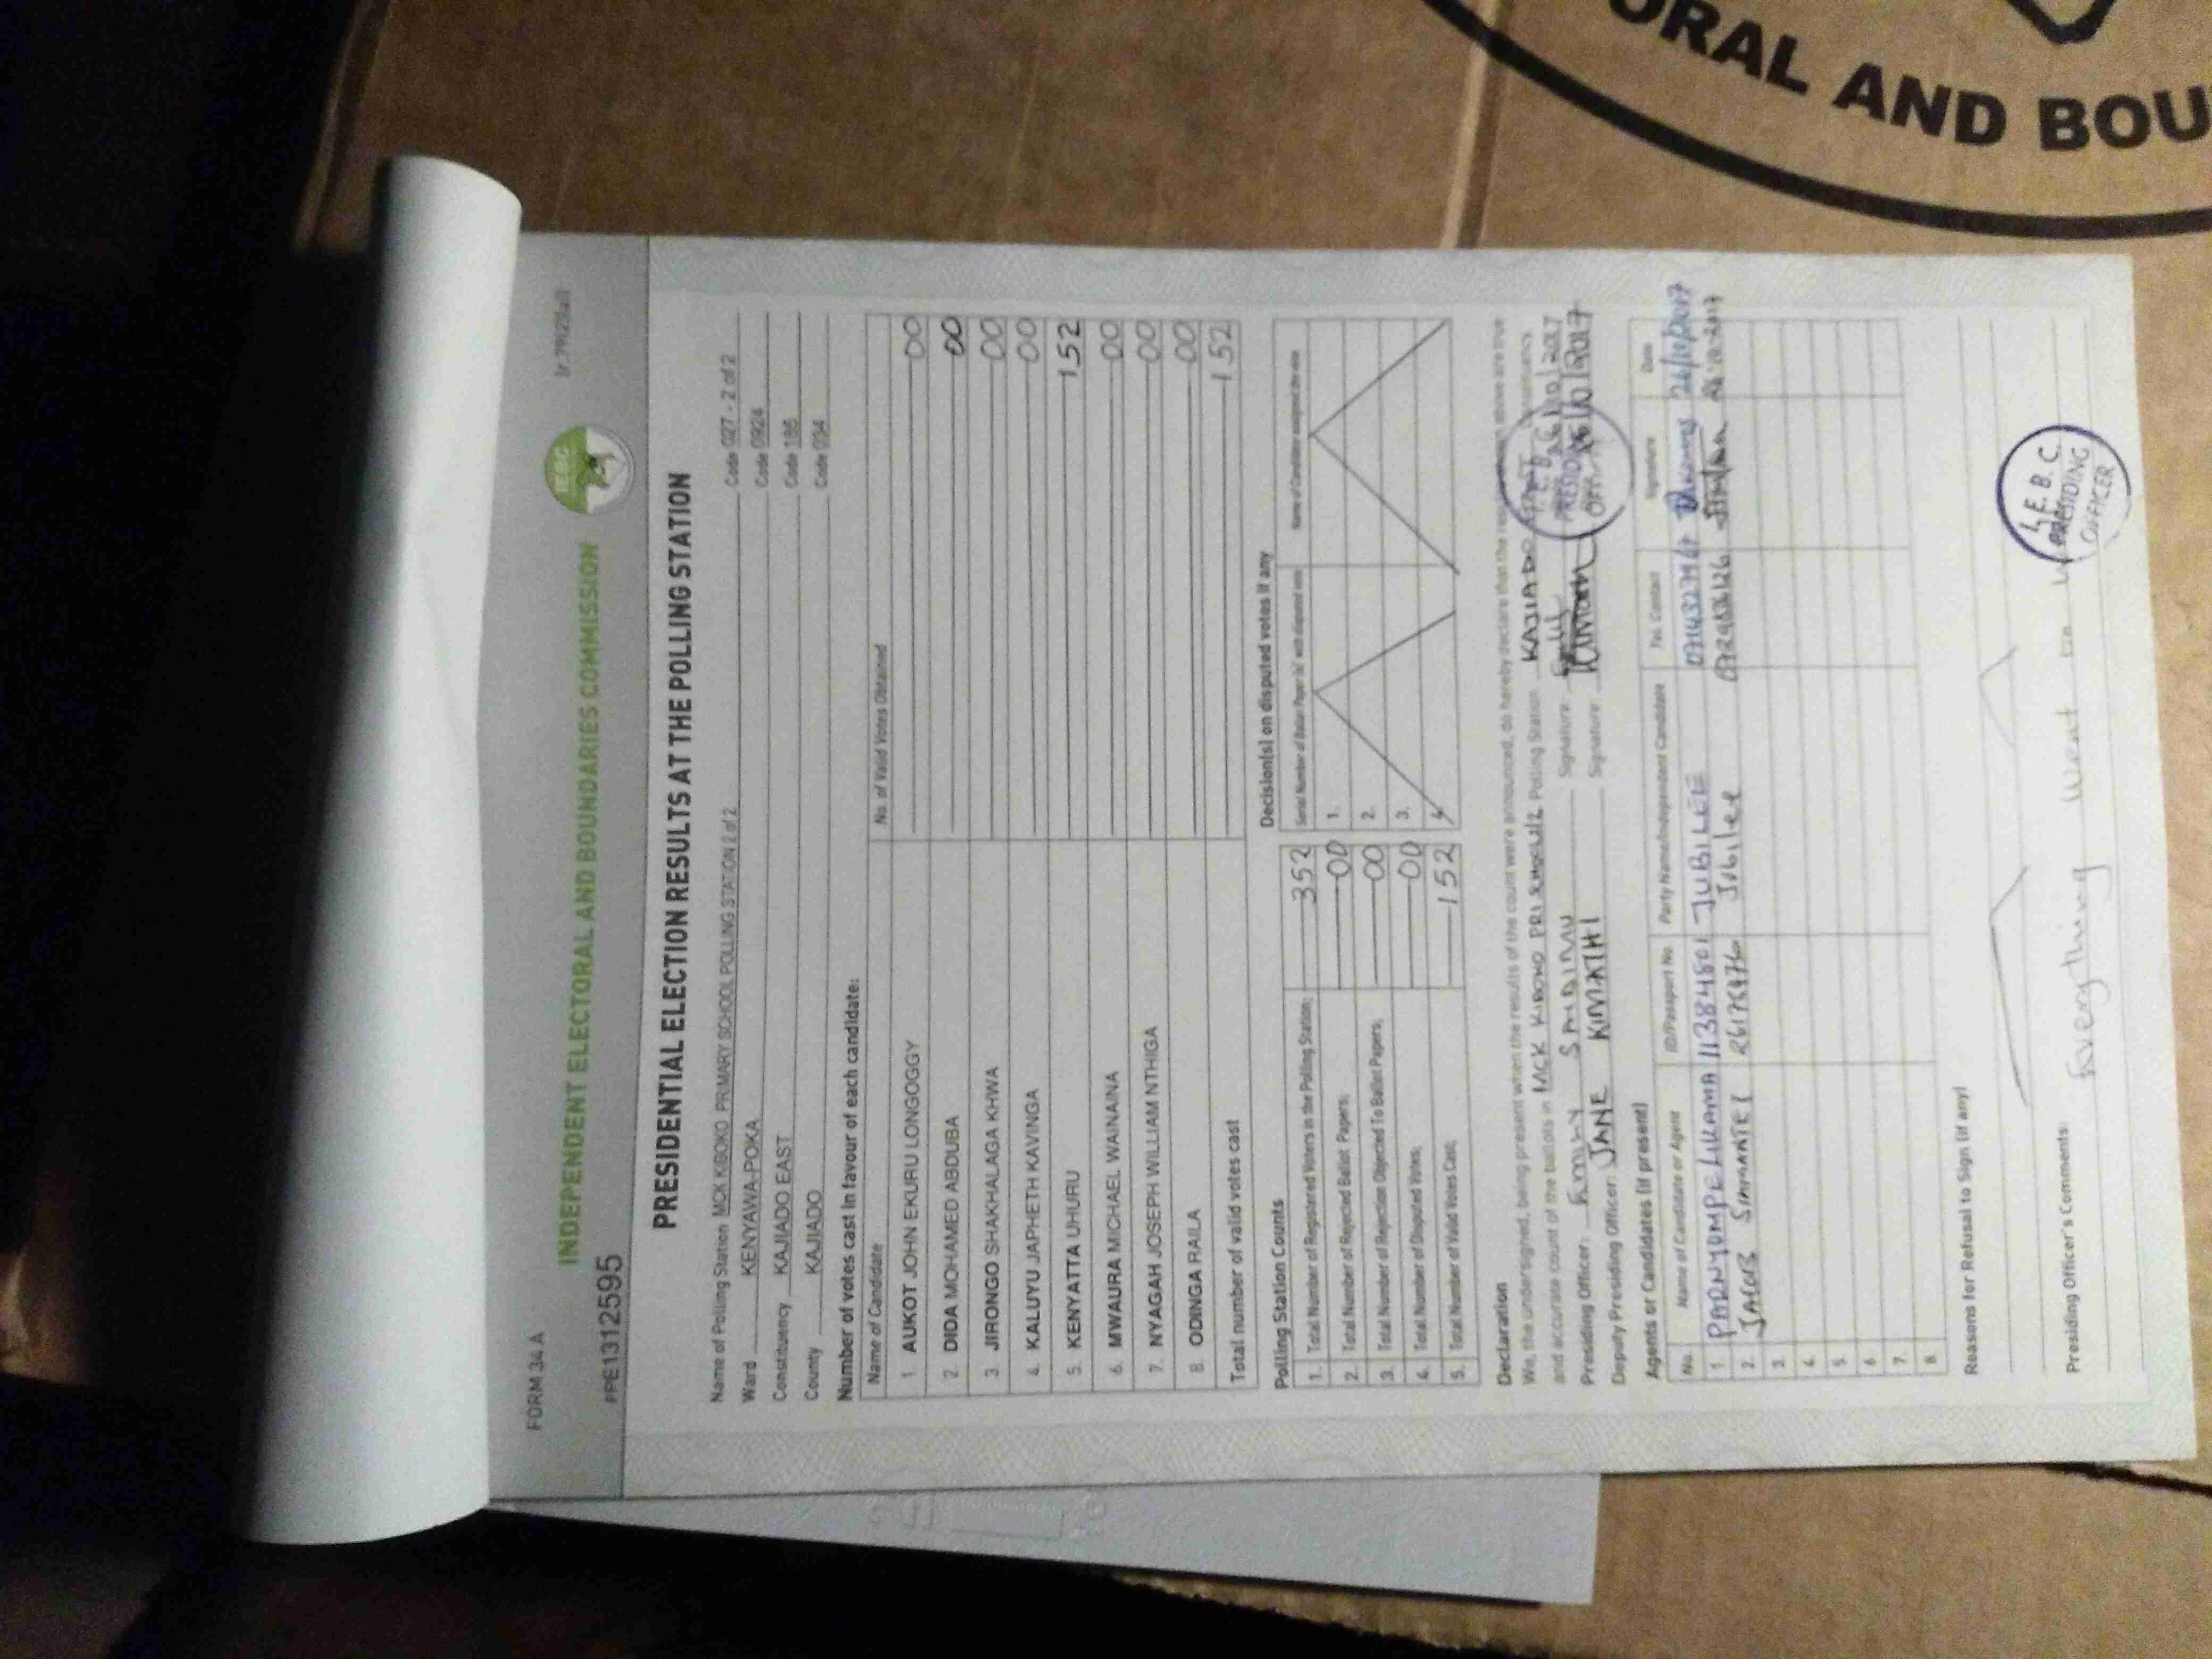 ORAL AND BOU
FORM 34 A
INDEPENDENT ELECTORAL AND BOUNDARIES COMMISSION
IEBC
PRE1312595
PRESIDENTIAL ELECTION RESULTS AT THE POLLING STATION
Name of Polling Station MCK KIBOKO PRIMARY SCHOOL POLLING STATION 2 of 2 Code 027 - 2 of 2
Ward KENYAWA-POKA Code 0924
Constituency KAJIADO EAST Code 185
County KAJIADO Code 034
Number of votes cast in favour of each candidate:
Name of Candidate No. of Valid Votes Obtained
1 AUKOT JOHN EKURU LONGOGGY 00
2. DIDA MOHAMED ABDUBA 00
3 JIRONGO SHAKHALAGA KHWA 00
4. KALUYU JAPHETH KAVINGA 00
5. KENYATTA UHURU 152
6. MWAURA MICHAEL WAINAINA 00
7. NYAGAH JOSEPH WILLIAM NTHIGA 00
8. ODINGA RAILA 00
Total number of valid votes cast 152
Polling Station Counts
1. Total Number of Registered Voters in the Polling Station; 352
2. Total Number of Rejected Ballot Papers; 00
3. Total Number of Rejection Objected To Ballot Papers; 00
4. Total Number of Disputed Votes; 00
5. Total Number of Valid Votes Cast; 152
Decision(s) on disputed votes if any
Serial Number of Ballot Paper (s) with disputed votes Name of Candidate assigned the vote
1.
2.
3.
4
Declaration
We, the undersigned, being present when the results of the count were announced, do hereby declare that the results shown above are true
and accurate count of the ballots in MCK KIBOKO PRI SCHOOL 2 Polling Station KAJIADO EAST Constituency
Presiding Officer: Emily SAIDIMU Signature 26/10/2017
Deputy Presiding Officer: JANE KIMATHI Signature 26/10/2017
I.E.B.C. PRESIDING OFFICER
Agents or Candidates (if present)
No. Name of Candidate or Agent ID/Passport No. Party Name/Independent Candidate Tel. Contact Signature Date
1. PARNYOMPE LIKAMA 113848501 JUBILEE 26/10/2017
2. JACOB 26178476 Jubilee 26-10-2017
3.
4.
5.
6
7.
8.
Reasons for Refusal to Sign (if any)
Presiding Officer's Comments: Everything went on
I.E.B.C.
PRESIDING
OFFICER